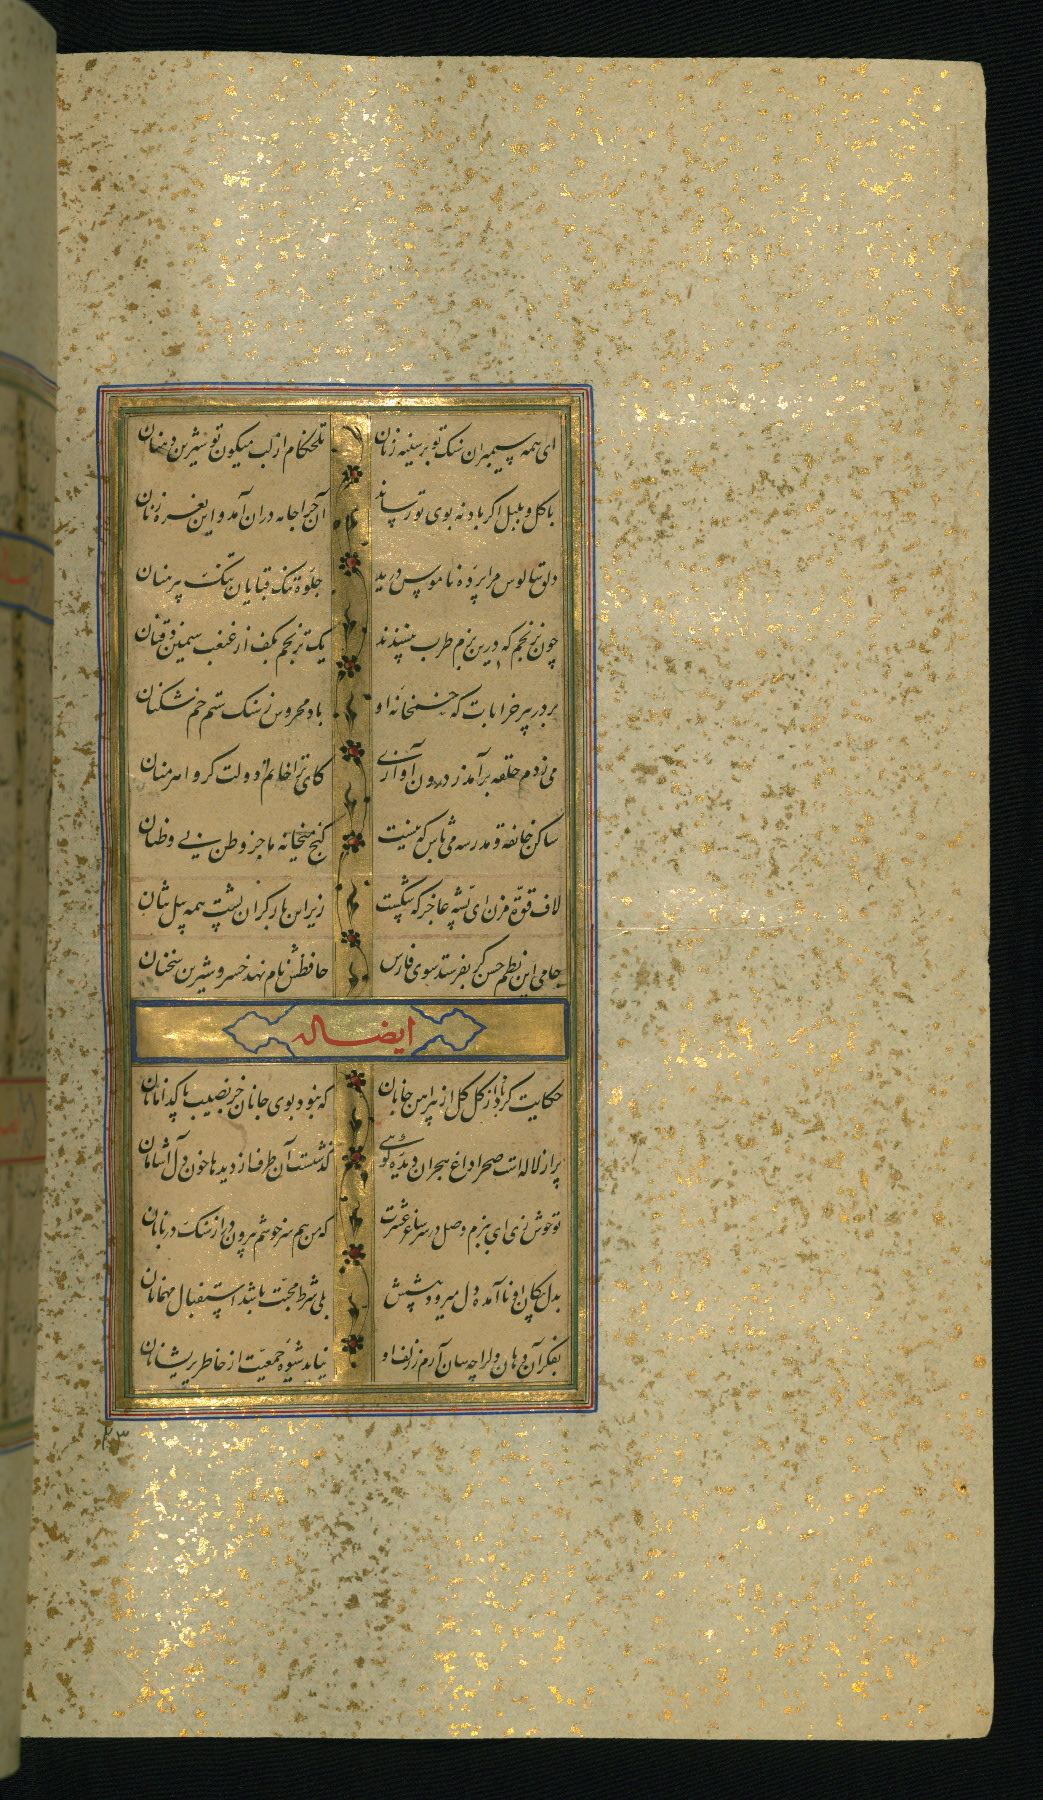 ای همه سیمبران سنک تو بر سینه زنان تلخکام از لب میکون تو شیرین دهنان
با کل و بلبل اکر باد نه بوی تو رساند آن چرا جامه دران آمد و این نعره زنان
دلق سالوس مرا پرده ناموس درید جلوه تنک قبایان تنک پیرهنان
چون ترنجم که درین بزم طرب نپسندند یک ترنجم بکف از غبغب سیمین ذقنان
بر در پیر خرابات که خمخانه او باد محروس ز سنک ستم خم شکنان
می زدم حلقه برآمد ز درون آوازی کای ترا خاتم دولت کرو اهرمنان
ساکن خانقه و مدرسه می باش که نیست کنج میخانه ما جز وطن بی وطنان
لاف قوّة مزن ای پشّه عاجز که شکست زیر این بار کران پشت همه پیل تنان
جامی این نظم حسن کر بفرستد سوی فارس حافظش نام نهد خسرو شیرین سخنان
ایضا له
حکایت کرد باد از کل کل از پیراهن جانان که نبود بوی جانان جز نصیب پاکدامانان
پر از لاله است صحرا داغ هجران دیده کوئی کذشتست آن طرف از دیدها خون دل آشامان
تو خوش زی ای ببزم وصل در سر ساغر عشرت که من هم سرخوشم بیرون در از سنک دربانان
بدل پیکان او ناآمده دل میرود پیشش بلی شرط محبّت باشد استقبال مهمانان
بفکر آن دهان دل را چه سان آرم ز زلف او نیاید شیوه جمعیّت از خاطر پریشانان
۲۳